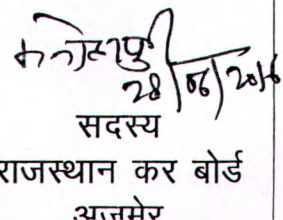 28/06/2016
सदस्य
राजस्थान कर बोर्ड
अजमेर